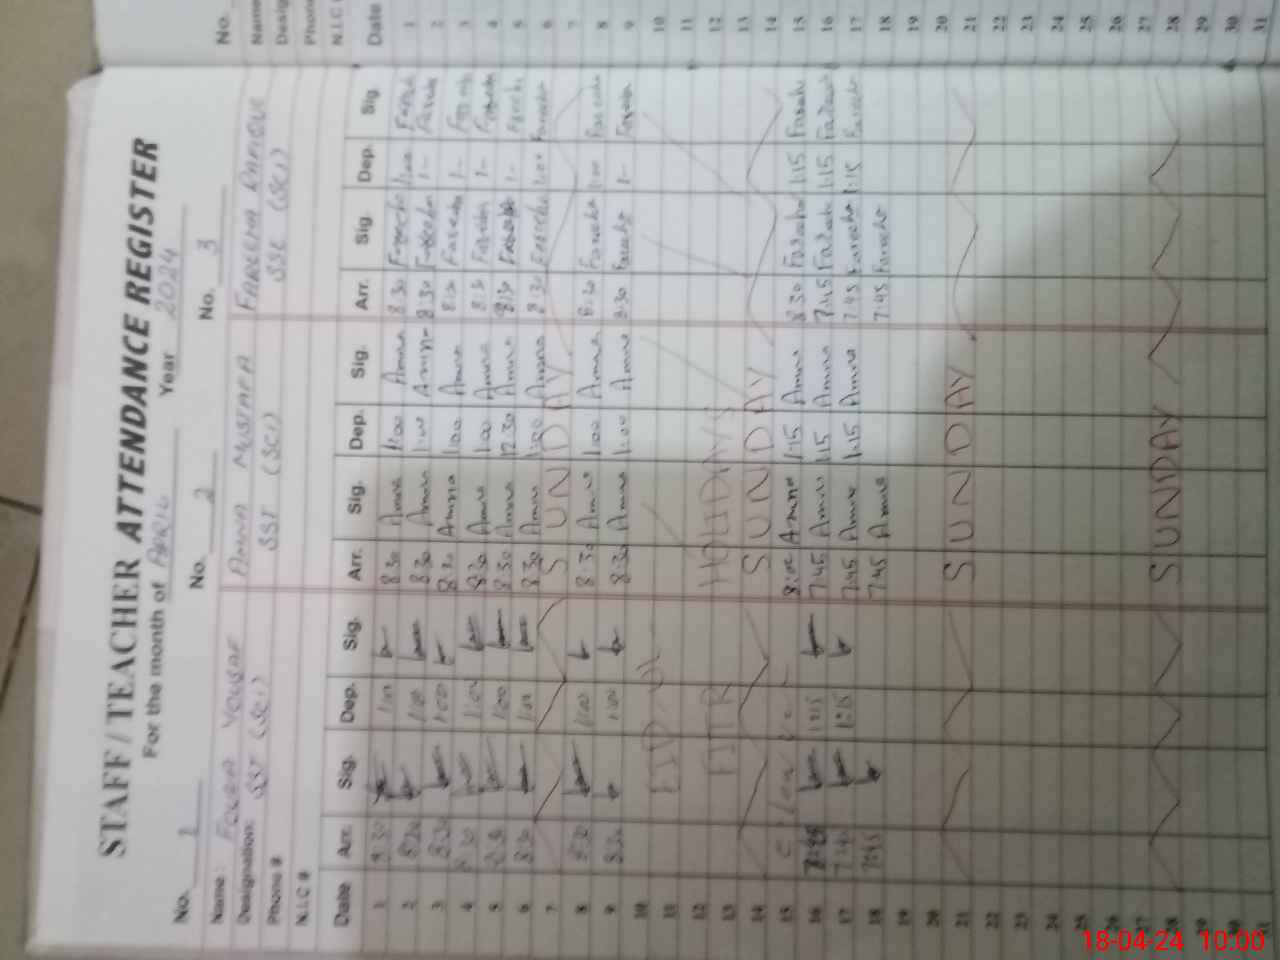 STAFF / TEACHER ATTENDANCE REGISTER
For the month of APRIL Year 2024
No. 1 No. 2 No. 3
Name: FOZIA YOUSAF AMNA MUSTAFA FAREEHA RAFIQUE
Designation: SST (SCI) SST (SCI) SSE (SCI)
Phone #
N.I.C #
Date Arr. Sig. Dep. Sig. Arr. Sig. Dep. Sig. Arr. Sig. Dep. Sig.
1 8:30 1:00 8:30 Amna 1:00 Amna 8:30 Fareeha 1:00 Fareeha
2 8:30 1:00 8:30 Amna 1:00 Amna 8:30 Fareeha 1-
3 8:30 1:00 8:30 Amna 1:00 Amna 8:30 Fareeha 1- Fareeha
4 8:30 1:00 8:30 Amna 1:00 Amna 8:30 Fareeha 1- Fareeha
5 8:30 1:00 8:30 Amna 12:30 Amna 8:30 Fareeha 1- Fareeha
6 8:30 1:00 8:30 Amna 1:00 Amna 8:30 Fareeha 1:00 Fareeha
7 SUNDAY
8 8:30 1:00 8:30 Amna 1:00 Amna 8:30 Fareeha 1:00 Fareeha
9 8:30 1:00 8:30 Amna 1:00 Amna 8:30 Fareeha 1- Fareeha
10 EID-UL-
11
12 FITR HOLIDAYS
13
14 SUNDAY
15 C/Leave 8:00 Amna 1:15 Amna 8:30 Fareeha 1:15 Fareeha
16 1:15 7:45 Amna 1:15 Amna 7:45 Fareeha 1:15 Fareeha
17 7:45 1:15 7:45 Amna 1:15 Amna 7:45 Fareeha 1:15 Fareeha
18 7:45 7:45 Amna 7:45 Fareeha
19
20
21 SUNDAY
22
23
24
25
26
27
28 SUNDAY
29
30
31
No.
Name
Desig
Phone
N.I.C
Date
1
2
3
4
5
6
7
8
9
10
11
12
13
14
15
16
17
18
19
20
21
22
23
24
25
26
27
28
29
30
31
18-04-24 10:00